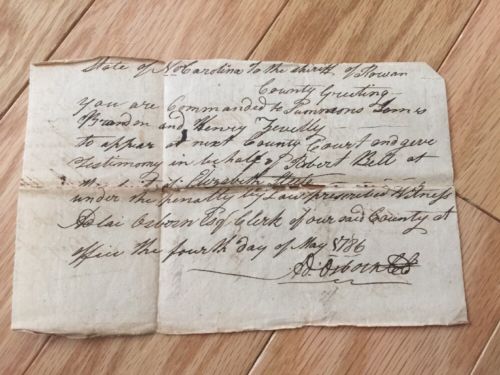 State of No Carolina To the sheriff of Rowan
County Greeting
You are Commanded to Summons James
Brandon and Henry
to appear at next County Court and give
Testimony in behalf of Robert Bell at
Elizabeth
under the penalty by Law prescribed Witness
Adlai Osborn Esq Clerk of our said County at
office the fourth day of May 1786
Ad: Osborn CC